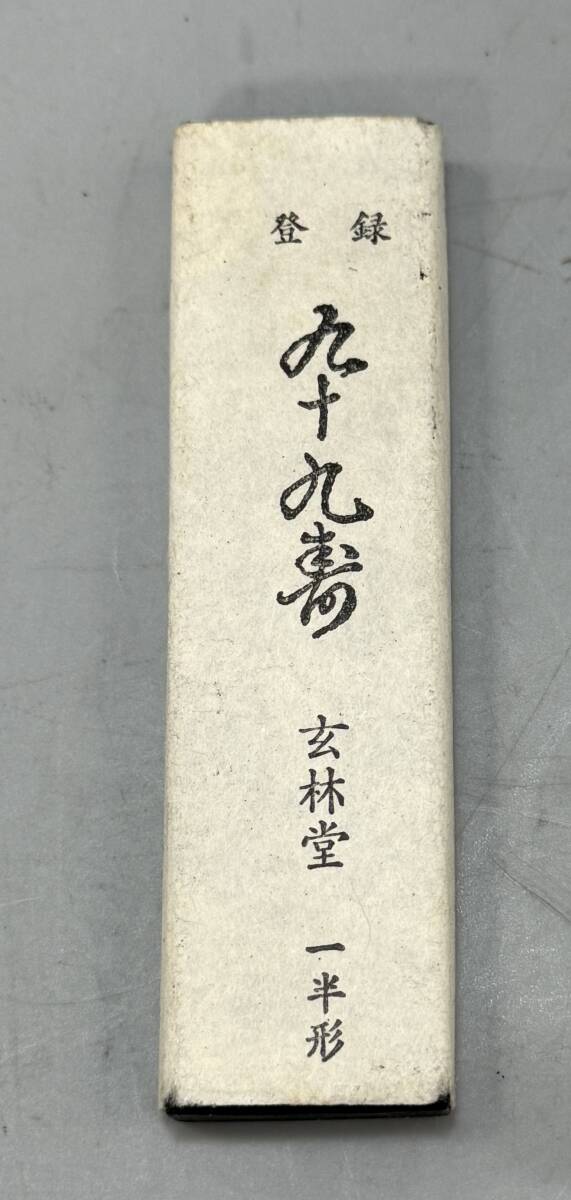 登録
九十九寿
玄林堂
一半形